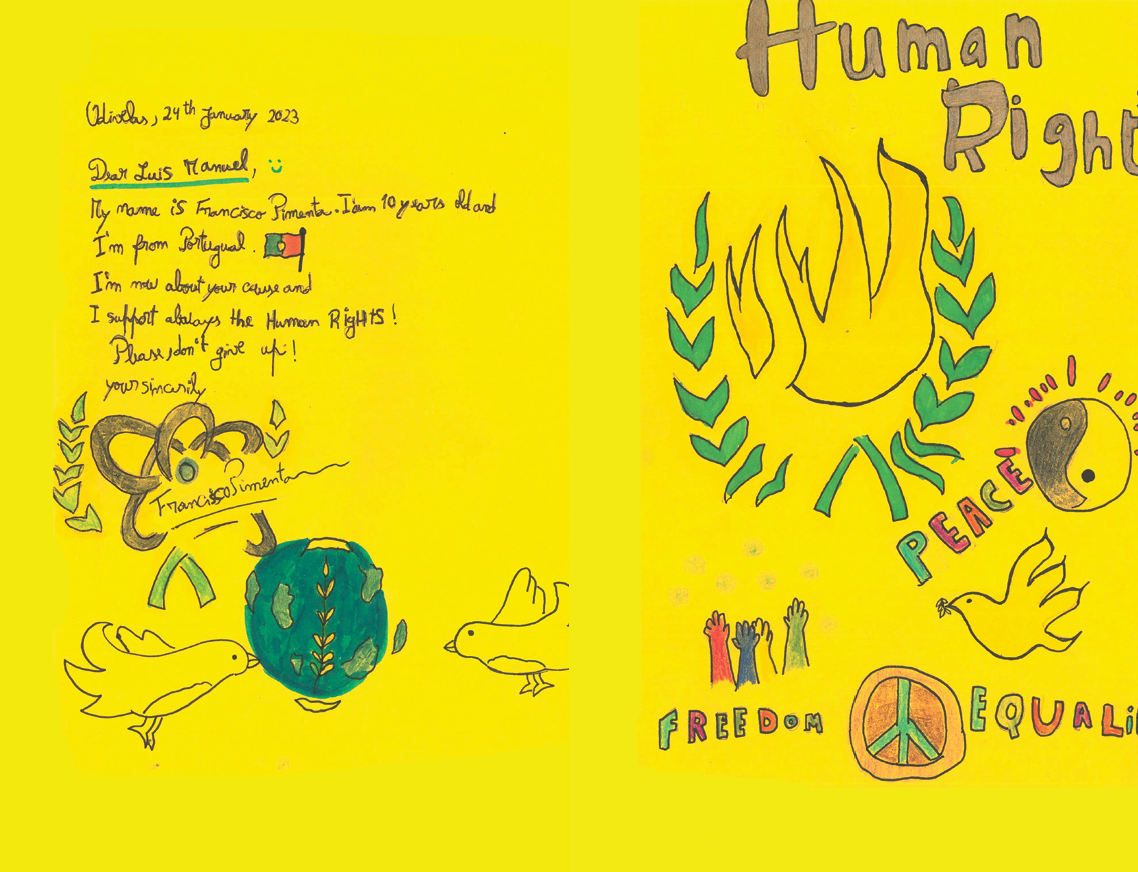 Odivelas, 24th January 2023
Dear Luis Manuel,
My name is Francisco Pimenta. I'am 10 years old and
I'm from Portugual.
I'm now about your cause and
I support alalays the Human RigHtS!
Please, don't give up!
your sincerily
Francisco Pimenta
Human
Right
PEACE
FREEDOM
EQUALi